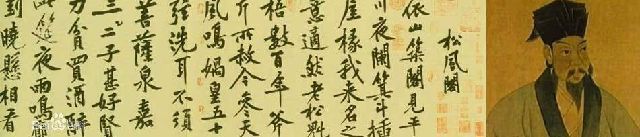 松風閣
依山築閣見平
川夜闌箕斗插
屋椽我來名之
意適然老松魁
梧數百年斧
斤所赦今參天
風鳴媧皇五十
弦洗耳不須
菩薩泉嘉
二三子甚好賢
力貧買酒醉
此筵夜雨鳴
到曉懸相看